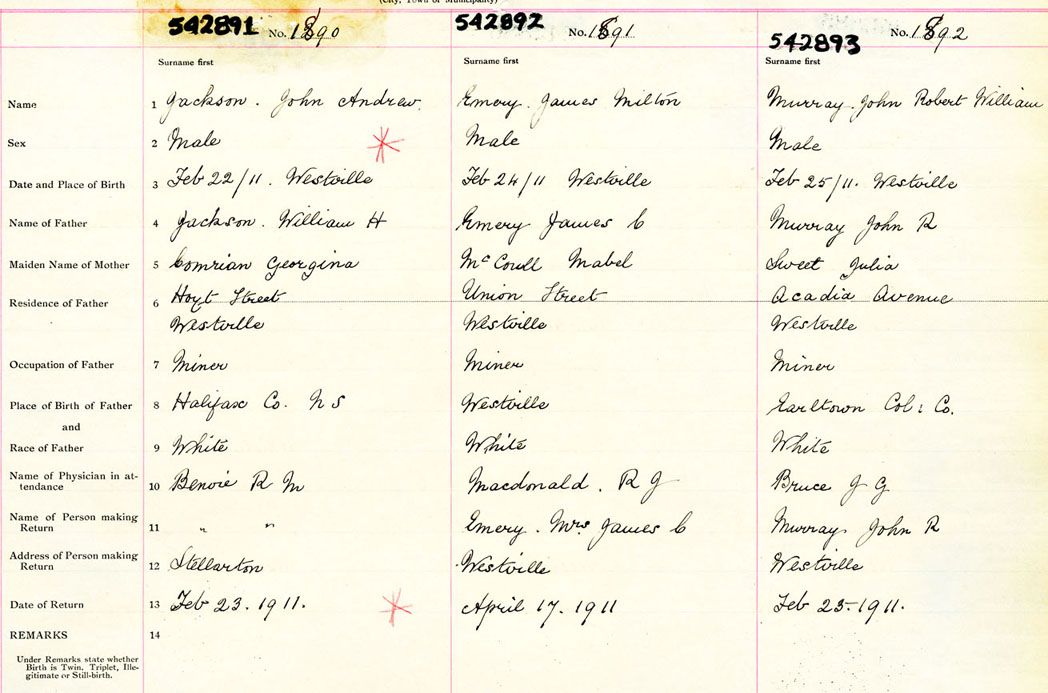 (City, Town or Municipality)
542891 No. 1890 542892 No. 1891 542893 No. 1892
Surname first Surname first Surname first
Name 1 Jackson. John Andrew. Emery. James Milton Murray. John Robert William
Sex 2 Male Male Male
Date and Place of Birth 3 Feb 22/11. Westville Feb 24/11 Westville Feb 25/11. Westville
Name of Father 4 Jackson. William H Emery James C Murray John R
Maiden Name of Mother 5 Georgina Mabel Sweet Julia
Residence of Father 6 Hoyt Street Union Street Acadia Avenue
Westville Westville Westville
Occupation of Father 7 Miner Miner Miner
Place of Birth of Father 8 Halifax Co. N S Westville Earltown Col: Co.
and
Race of Father 9 White White White
Name of Physician in at-
tendance 10 Benvie R M Macdonald. R J Bruce J G
Name of Person making
Return 11 " " Emery. Mrs James C Murray John R
Address of Person making
Return 12 Stellarton Westville Westville
Date of Return 13 Feb 23. 1911. April 17. 1911 Feb 25-1911.
REMARKS 14
Under Remarks state whether
Birth is Twin. Triplet, Ille-
gitimate or Still-birth.